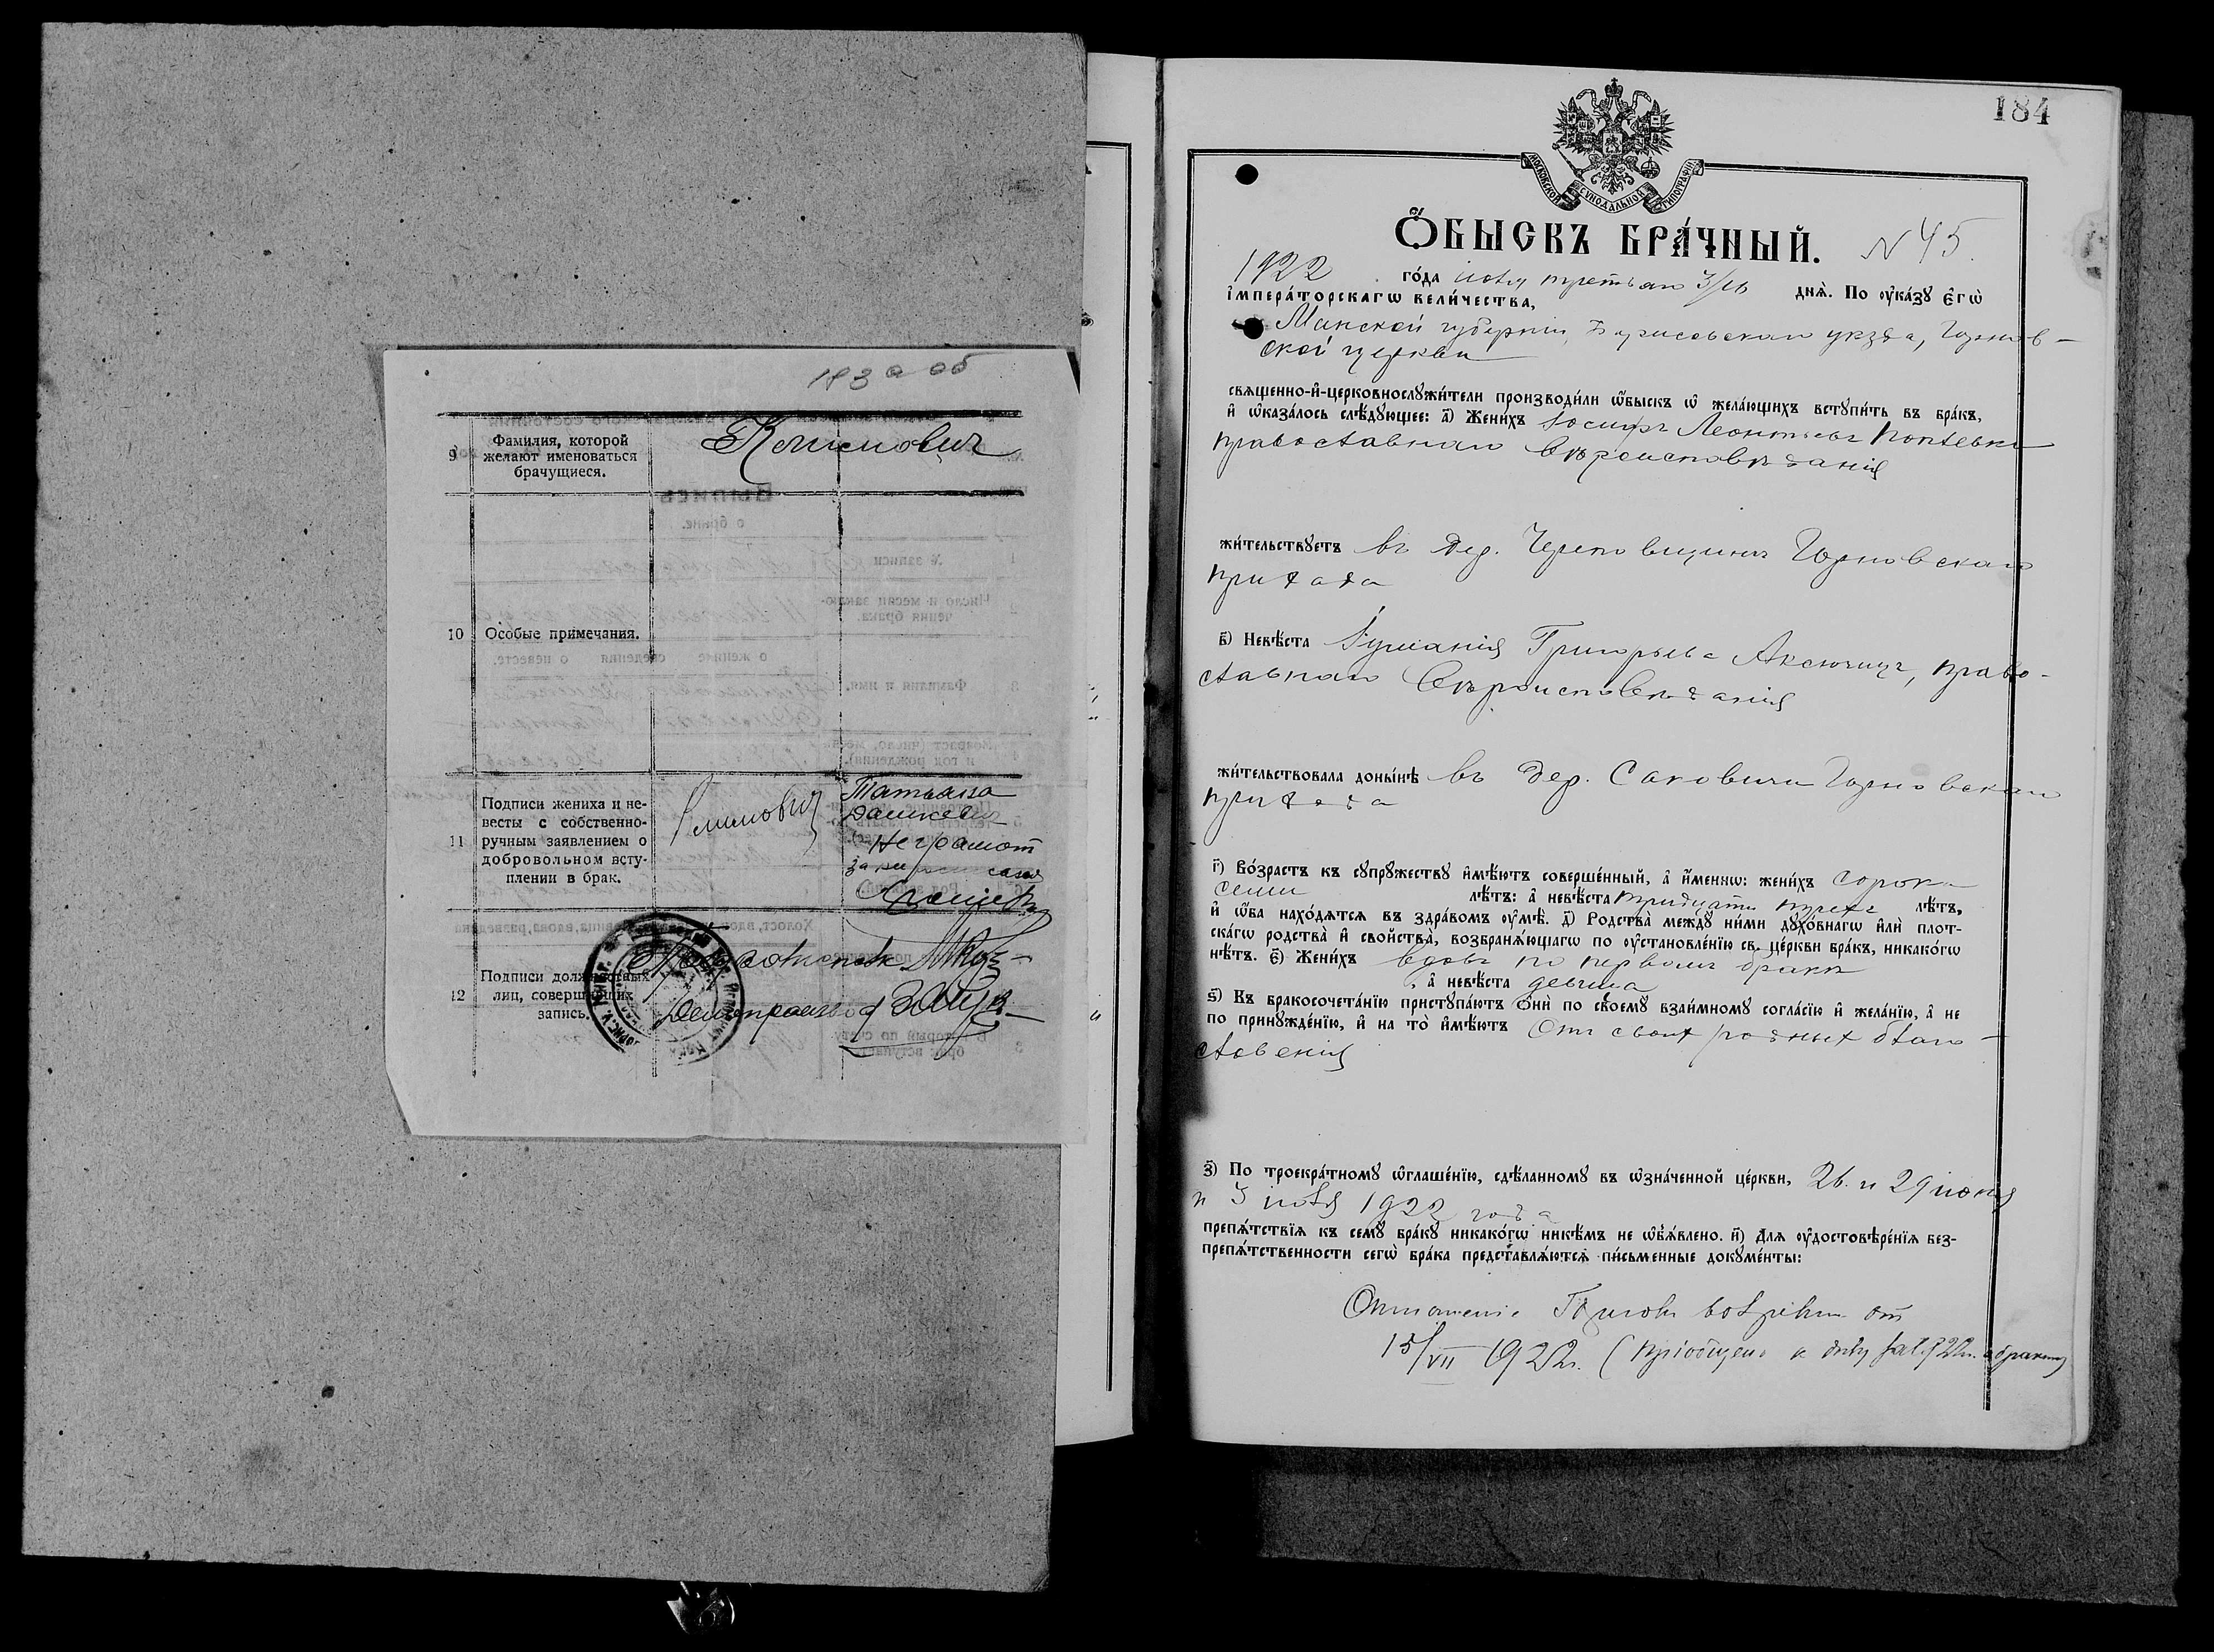 183 а об
9 Фамилия, которой
желают именоваться
брачущиеся.
10 Особые примечания.
11 Подписи жениха и не-
весты с собственно-
ручным заявлением о
добровольном всту-
плении в брак.
Татьяна
Дашкевич
неграмот
12 Подписи должностных
лиц, совершивших
запись.
184
МОСКОВСКОЙ СѴНОДАЛЬНОЙ ТИПОГРАФІИ
Ѻ҆БЫСКЪ БРА́ЧНЫЙ. N 45.
1922 го́да іюля третьяго 3/16 днѧ̀. По ᲂу҆ка́зꙋ Є҆гѡ̀
І҆мпера́торскагѡ Вели́чества,
Минской губерніи, Борисовскаго уѣзда,
ской церкви
сващенно-и҆-церковнослꙋжи́тели производи́ли ѡ҆́быскъ ѡ҆ жела́ющихъ встꙋпи́ть въ бра́къ,
и҆ ѡ҆каза́лось слѣ́дꙋющее: а҃) Жени́хъ Іосифъ Леонтьевъ
православнаго вѣроисповѣданія
жи́тельствꙋетъ въ дер.
прихода
б҃) Невѣ́ста Григорьева Аксючицъ, право-
славнаго вѣроисповѣданія
жи́тельствовала доны́нѣ въ дер. Саковичи
прихода
г҃) Во́зрастъ къ сꙋпрꙋ́жествꙋ и҆мѣ́ютъ соверше́нный, а҆ и҆́меннѡ: жени́хъ сорока
семи лѣ́тъ: а҆ невѣ́ста тридцати трехъ лѣ́тъ,
и҆ ѡ҆́ба нахо́дѧтсѧ въ здра́вомъ ᲂу҆мѣ̀. д҃) Родства̀ междꙋ̀ ни́ми дꙋхо́внагѡ и҆лѝ плот-
ска́гѡ родства̀ и҆ сво́йства̀, возбранѧ́ющагѡ по ᲂу҆становле́нїю св. це́ркви бра́къ, никако́гѡ
нѣ́тъ. є҃) Жени́хъ вдовъ по первомъ бракѣ
, а҆ невѣ́ста девица
ѕ҃) Къ бракосочета́нїю пристꙋпа́ютъ Ѻ҆нѝ по своемꙋ̀ взаи́мномꙋ согла́сїю и҆ жела́нїю, а҆ не
по принꙋжде́нїю, и҆ на то̀ и҆мѣ́ютъ отъ своих родных благо-
словенія
з҃) По троекра́тномꙋ ѡ҆глаше́нїю, сдѣ́ланномꙋ въ ѡ҆зна́ченной це́ркви, 26. и 29 іюня
и 3 іюля 1922 года
препѧ́тствїѧ къ семꙋ̀ бра́кꙋ никако́гѡ никѣ́мъ не ѡ҆б̾ѧ́влено. и҃) Длѧ ᲂу҆достовѣре́нїѧ без-
препѧ́тственности сегѡ̀ бра́ка представлѧ́ютсѧ пи́сьменные докꙋме́нты:
Отношеніе от
15/VII 1922г. (пріобщено к дѣлу за 1922г. о браках)